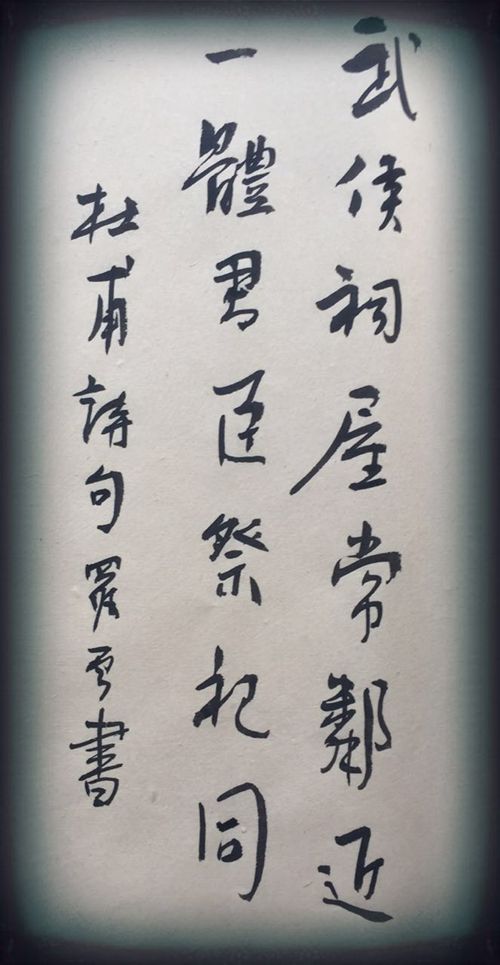 武侯祠屋常鄰近
一體君臣祭祀同
杜甫詩句羅書